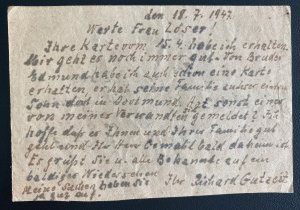 den 18.7.1947.
Werte Frau Löser!
Ihre Karte vom 15.4. habe ich erhalten.
Mir geht es noch immer gut. Von Bruder
Edmund habe ich auch schon eine Karte
erhalten, er hat seine Familie ausser einen
Sohn dort in Dortmund. Hat sonst einer
von meinen Verwandten gemeldet? Ich
hoffe daß es Ihnen und Ihrer Familie gut
geht und Ihr Herr Oswald bald daheim ist.
Es grüßt Sie u. alle Bekannte auf ein
baldiges Wiedersehen
Meine Sachen heben Sie Ihr Richard Gutzeit
ja gut auf.